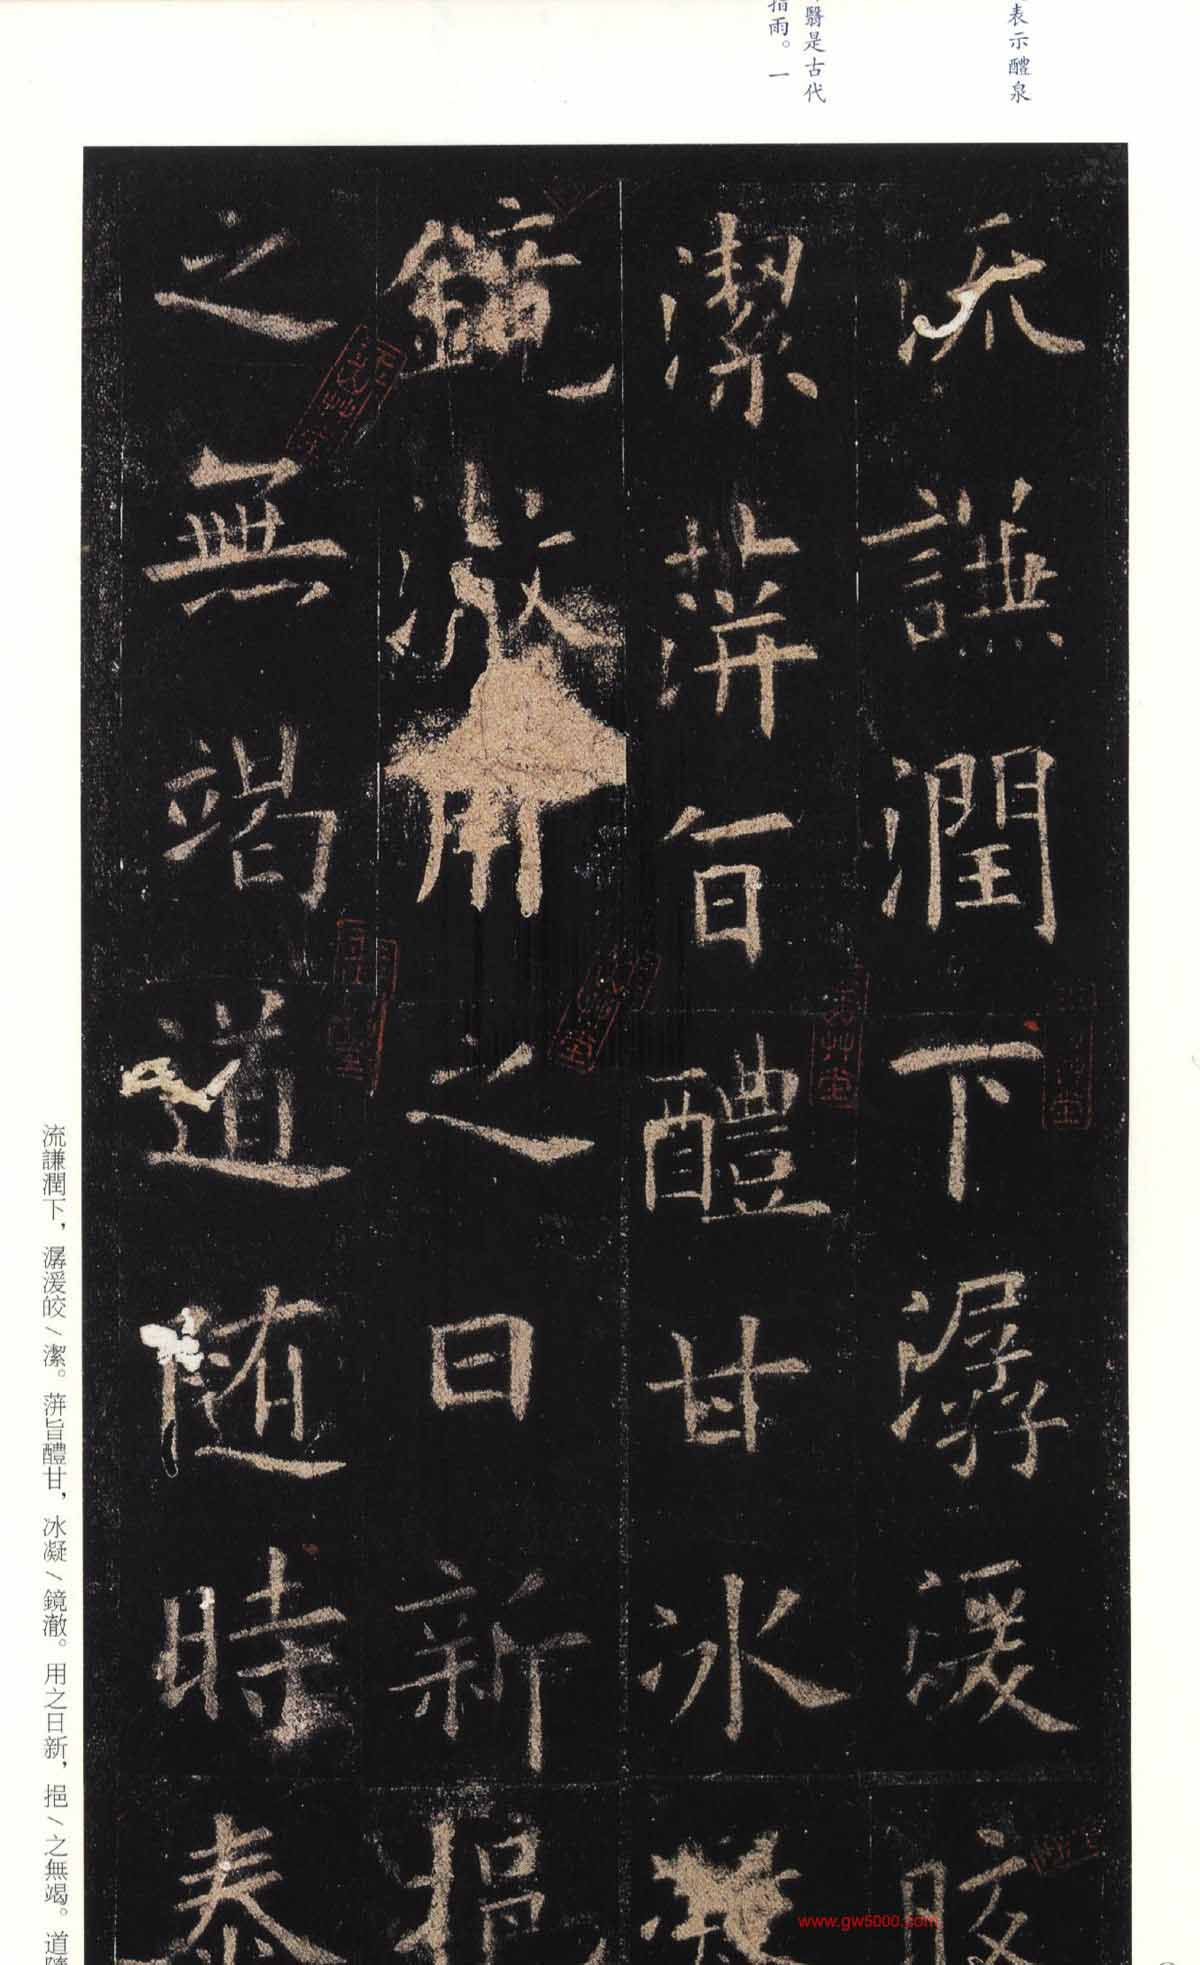 表示醴泉
翳是古代
指雨。一
流謙潤下潺湲皎
潔蓱旨醴甘冰凝
鏡澈用之日新挹
之無竭道随時泰
流謙潤下，潺湲皎/潔。蓱旨醴甘，冰凝/鏡澈。用之日新，挹/之無竭。道隨
www.gw5000.com